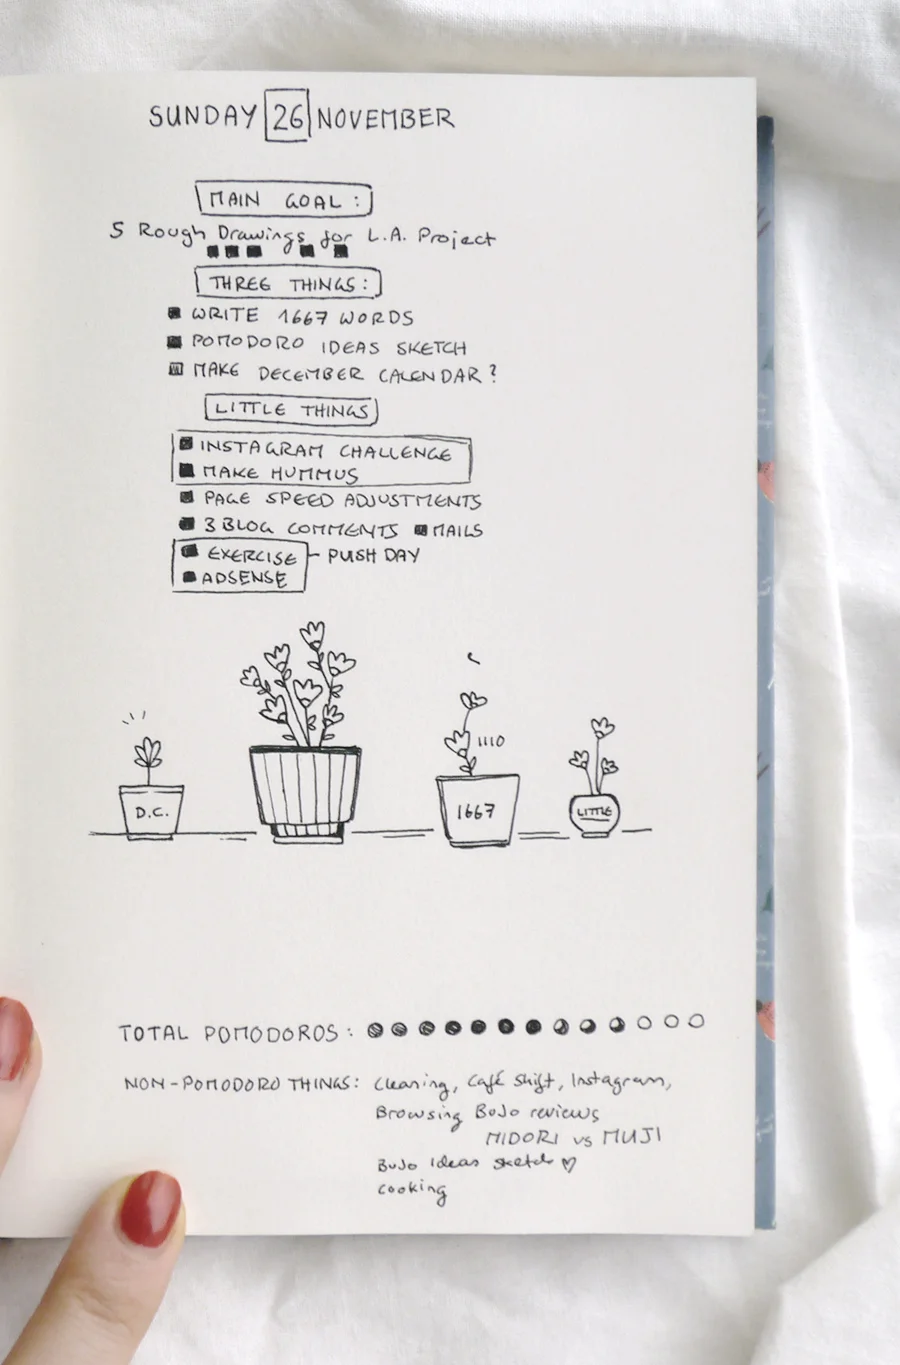 SUNDAY 26 NOVEMBER
MAIN GOAL:
5 Rough Drawings for L.A. Project
THREE THINGS:
WRITE 1667 WORDS
POMODORO IDEAS SKETCH
MAKE DECEMBER CALENDAR?
LITTLE THINGS
INSTAGRAM CHALLENGE
MAKE HUMMUS
PAGE SPEED ADJUSTMENTS
3 BLOG COMMENTS MAILS
EXERCISE - PUSH DAY
ADSENSE
1110
D.C.
1667
LITTLE
TOTAL POMODOROS:
NON-POMODORO THINGS: Cleaning, Café Shift, Instagram,
Browsing BuJo reviews
MIDORI vs MUJI
BuJo Ideas sketch ♡
cooking